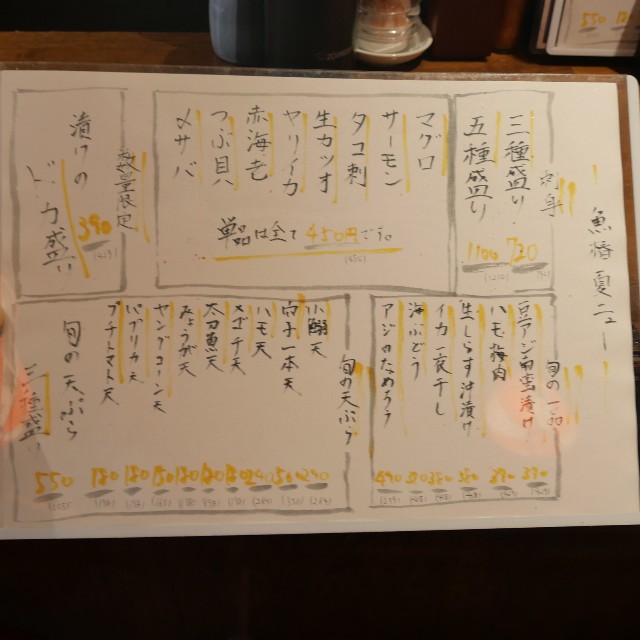 魚椿 夏ニュー
刺身
三種盛り 720
五種盛り 1100
マグロ
サーモン
タコ刺
生カツオ
ヤリイカ
赤海老
つぶ貝
〆サバ
単品は全て450円です。
数量限定
漬けの
ドカ盛り
390
旬の一品
豆アジ南蛮漬け
ハモ梅肉
生しらす沖漬け
イカ一夜干し
海ぶどう
アジのたたき
旬の天ぷら
穴子一本天
ハモ天
メゴチ天
太刀魚天
みょうが天
ヤングコーン天
パプリカ天
プチトマト天
旬の天ぷら
三種盛り
550